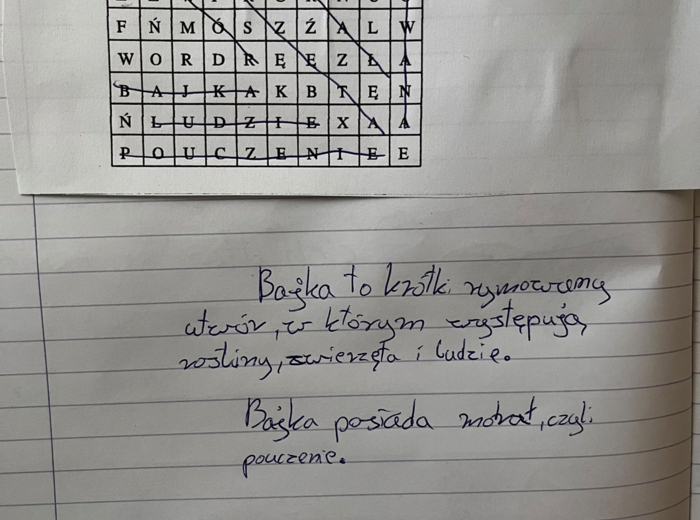 F Ń M Ó S Z Ź A L W
W O R D R Ę E Z Ł A
B A J K A K B T Ę N
Ń L U D Z I E X A A
P O U C Z E N I E E
Bajka to krótki rymowany
utwór, w którym występują
rośliny, zwierzęta i ludzie.
Bajka posiada morał, czyli
pouczenie.